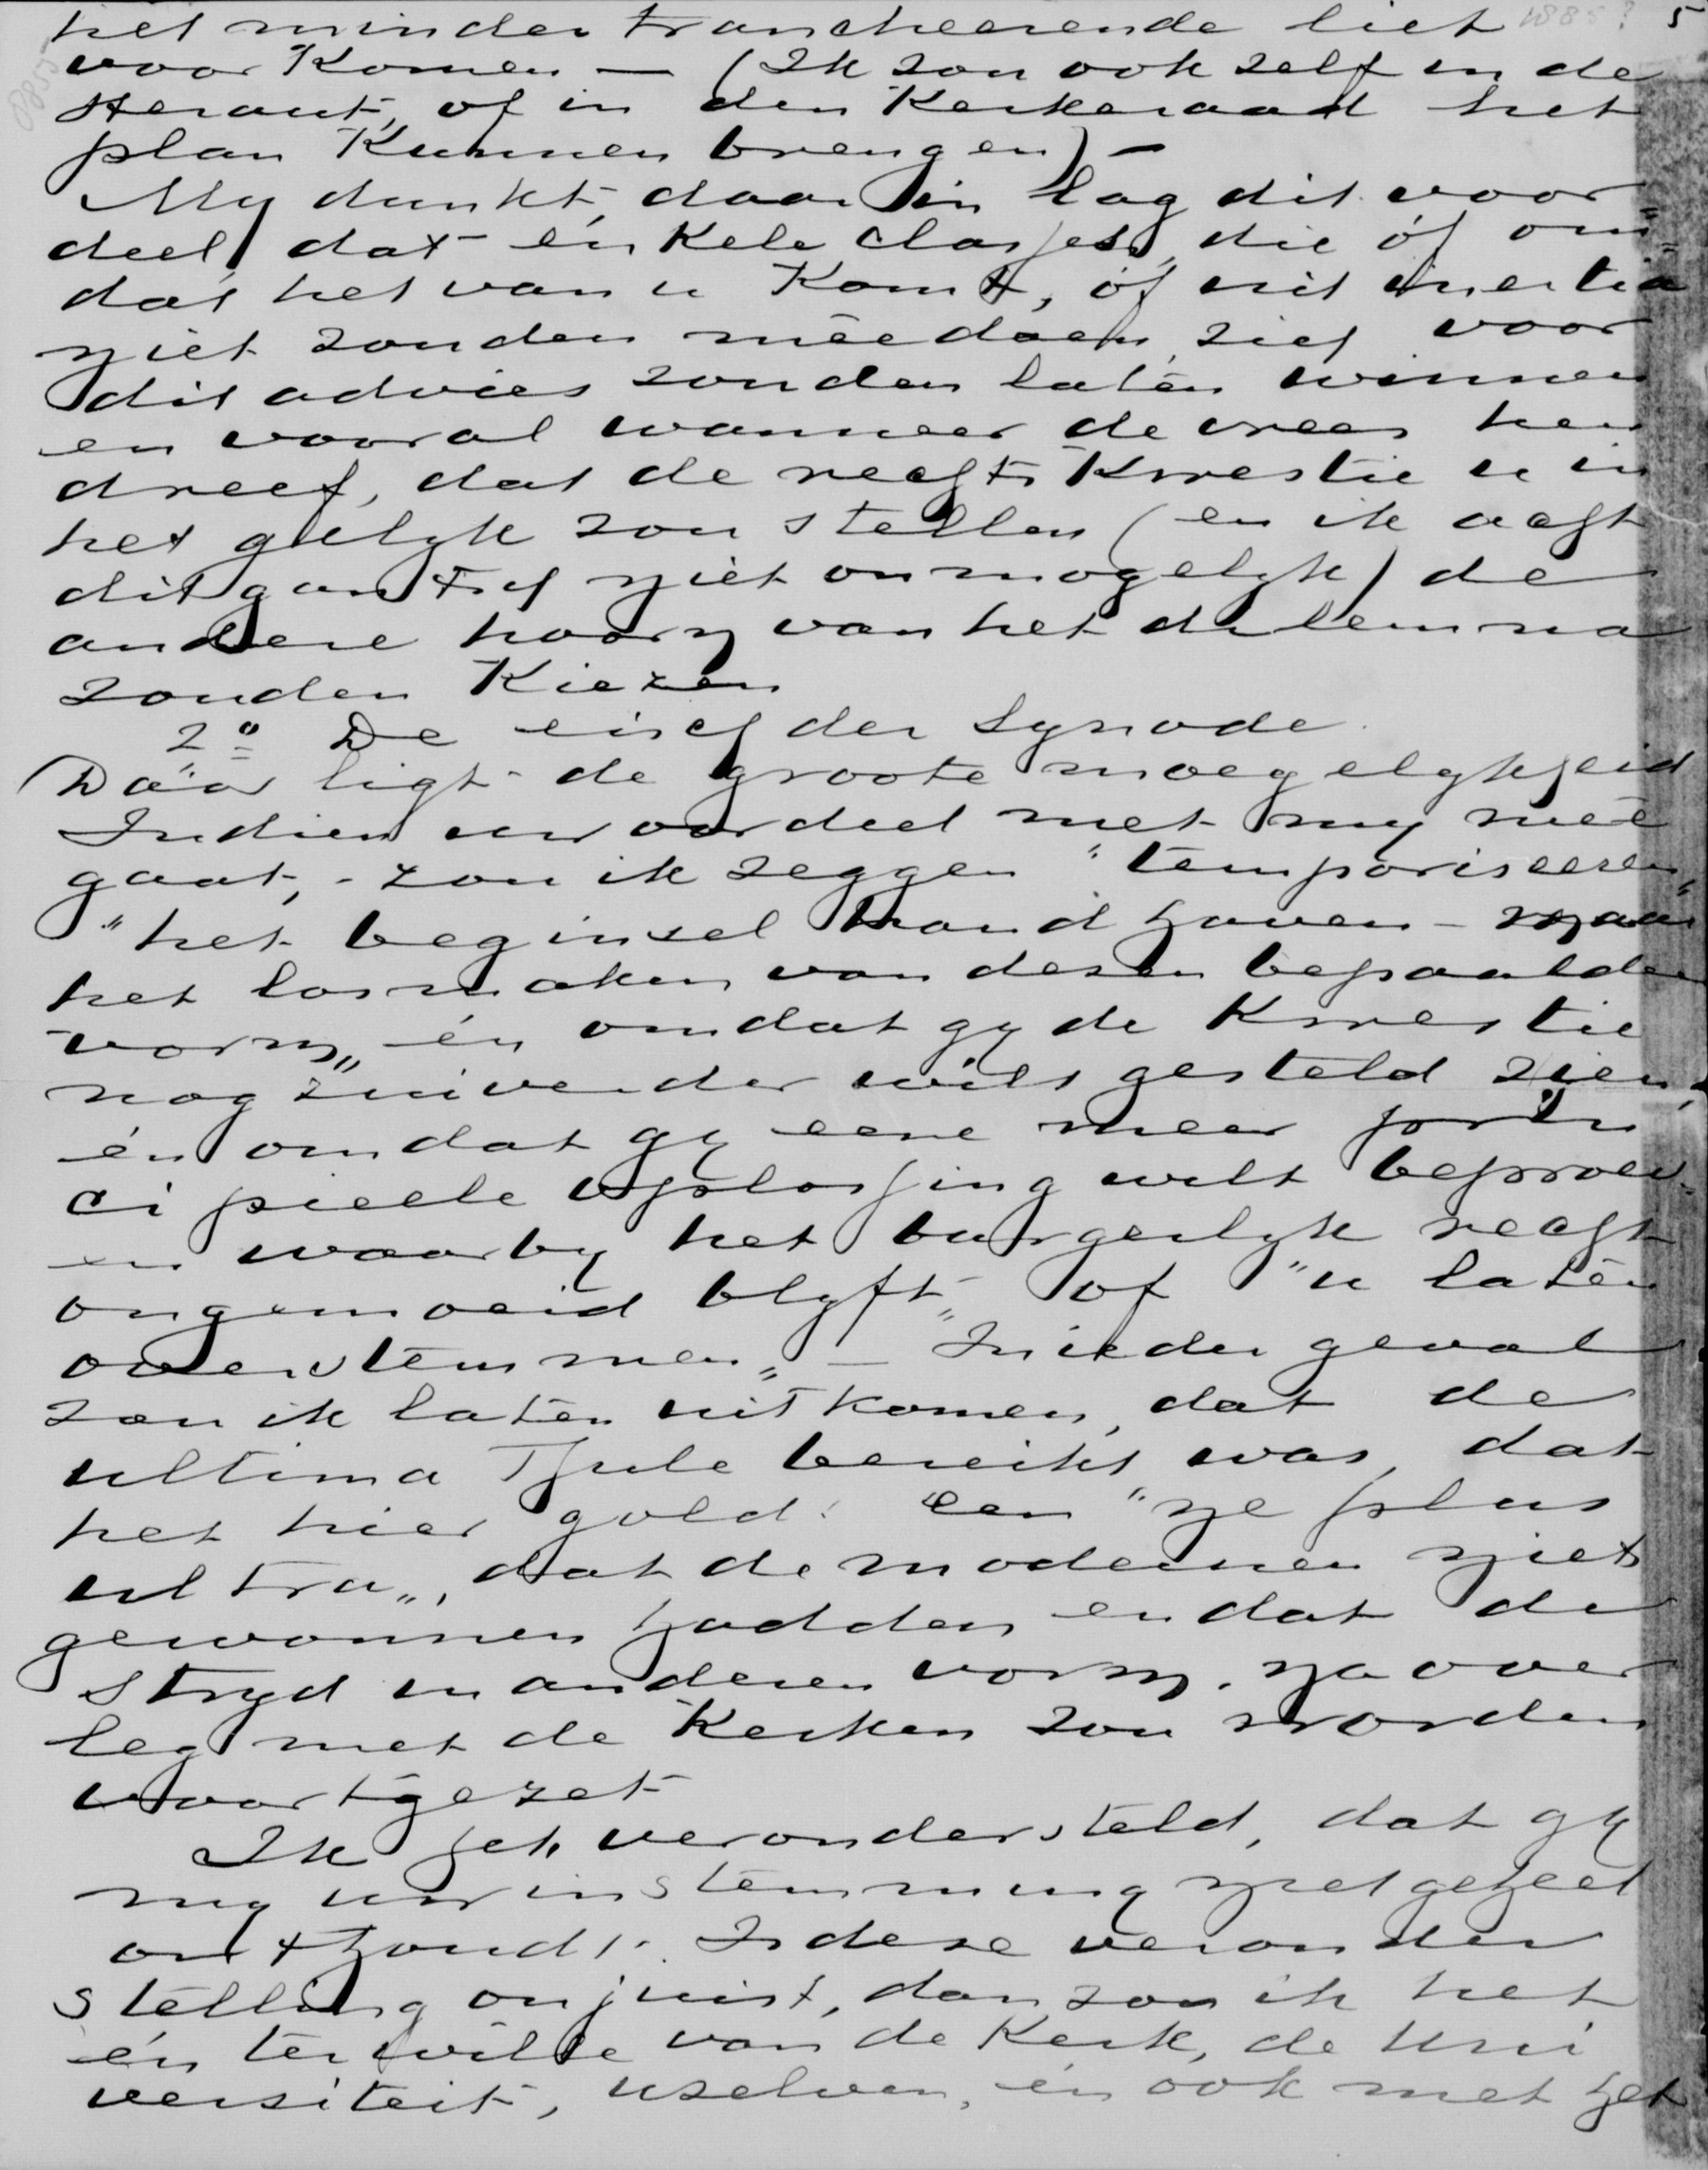 1885? 5
het minder trancheerende liet
voor komen — (Ik zou ook zelf in de
Heraut, of in den Kerkeraad het
plan kunnen brengen) –
My dunkt, daar in lag dit voor=
deel, dat enkele classes, die óf om=
dat het van u komt, óf uit inertia
niet zouden meêdoen, zich voor
dit advies zouden laten winnen
en vooral wanneer de vrees hen
dreef, dat de rechtskwestie u in
het gelyk zou stellen (en ik acht
dit gantsch niet onmogelyk) de
andere hoorn van het dilemma
zouden kiezen
2º De eisch der Synode.
Dáár ligt de groote moeyelykheid
Indien uw oordeel met my meê
gaat, - zou ik zeggen "temporiseeren„
"het beginsel handhaven – maar
het losmaken van dezen bepaalden
vorm„ én omdat gy de kwestie
nog zuiverder wilt gesteld zien,
én omdat gy eene meer prin
cipieele oplossing wilt beproev.
en waarby het burgerlyk recht
ongemoeid blyft„ of "u laten
overstemmen„ — In ieder geval
zou ik laten uitkomen, dat de
ultima Thule bereikt was, dat
het hier gold: een "ne plus
ultra„, dat de modernen niet
gewonnen hadden en dat de
stryd in anderen vorm, na over
leg met de Kerken zou worden
voortgezet
Ik heb verondersteld, dat gy
my uw instemming niet geheel
onthoudt. Is deze veronder
stelling onjuist, dan zou ik het
én ter wille van de Kerk, de Uni
versiteit, uzelven, én ook met het